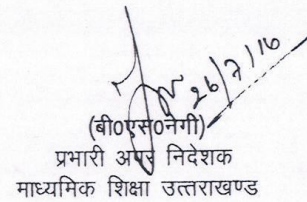 26/7/16
(बी0एस0नेगी)
प्रभारी अपर निदेशक
माध्यमिक शिक्षा उत्तराखण्ड